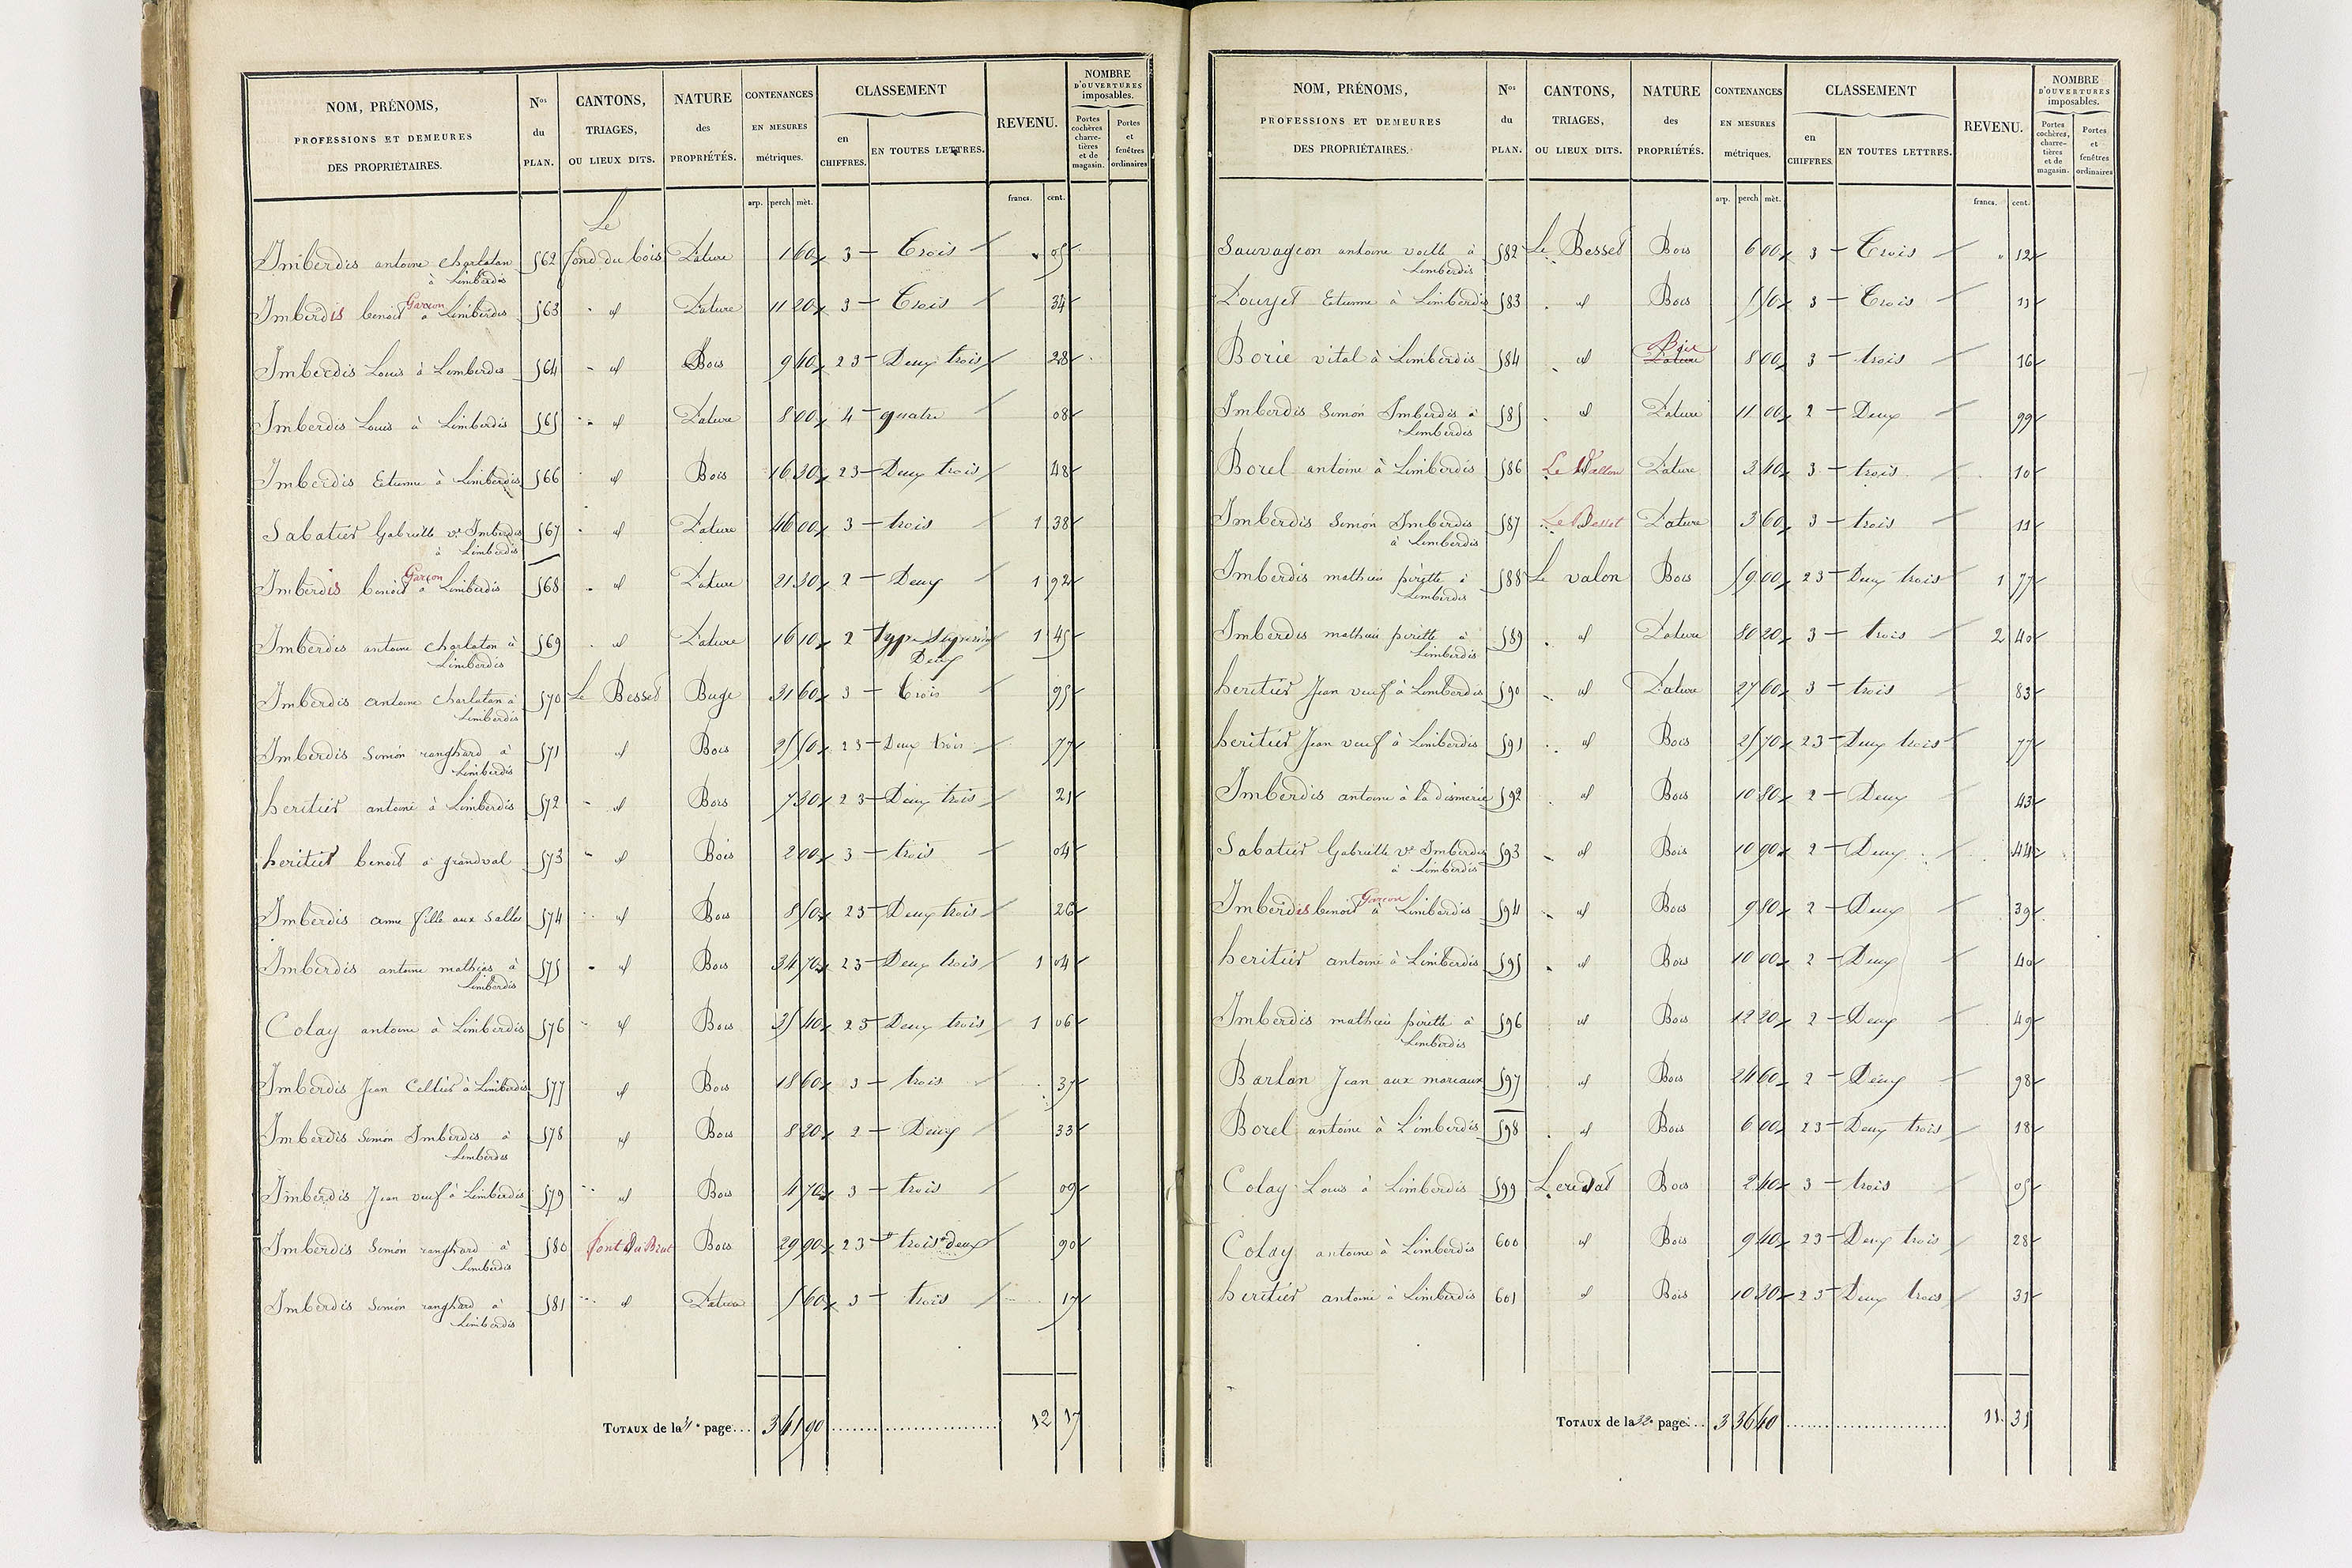 NOM, PRÉNOMS, PROFESSIONS ET DEMEURES DES PROPRIÉTAIRES. Nos du PLAN. CANTONS, TRIAGES, OU LIEUX DITS. NATURE des PROPRIÉTÉS. CONTENANCES EN MESURES métriques. CLASSEMENT en CHIFFRES. EN TOUTES LETTRES. REVENU. NOMBRE D'OUVERTURES imposables. Portes cochères charretières et de magasin. Portes et fenêtres ordinaires
arp. perch mèt. francs. cent.
Imberdis antoine charlatan à Limberdis 562 Le fond du bois Pature 1 60 3 Trois " 05
Imberdis benoit Garçon à Limberdis 563 id Pature 11 20 3 Trois 34
Imberdis Louis à Limberdis 564 id Bois 9 40 2 3 Deux trois 28
Imberdis Louis à Limberdis 565 id Pature 8 00 4 quatre 08
Imberdis Etienne à Limberdis 566 id Bois 16 30 2 3 Deux trois 48
Sabatier Gabrielle ve Imberdis à Limberdis 567 id Pature 46 00 3 trois 1 38
Imberdis benoit Garçon à Limberdis 568 id Pature 21 30 2 Deux 1 92
Imberdis antoine charlatan à Limberdis 569 id Pature 16 10 2 Deux 1 45
Imberdis antoine charlatan à Limberdis 570 Le Besset Buge 31 60 3 trois 95
Imberdis Simon ranghard à Limberdis 571 id Bois 25 50 2 3 Deux trois 77
heritier antoine à Limberdis 572 id Bois 7 30 2 3 Deux trois 21
heritier benoit à grandval 573 id Bois 2 00 3 trois 04
Imberdis anne fille aux Salles 574 id Bois 8 50 2 3 Deux trois 26
Imberdis antoine mathias à Limberdis 575 id Bois 34 70 2 3 Deux trois 1 04
Colay antoine à Limberdis 576 id Bois 35 40 2 3 Deux trois 1 06
Imberdis Jean Cellier à Limberdis 577 id Bois 18 60 3 trois 37
Imberdis Simon Imberdis à Limberdis 578 id Bois 8 20 2 Deux 33
Imberdis Jean veuf à Limberdis 579 id Bois 4 70 3 trois 09
Imberdis Simon ranghard à Limberdis 580 Bois 29 90 2 3 trois deux 90
Imberdis Simon ranghard à Limberdis 581 id Pature 5 60 3 trois 17
TOTAUX de la 31e page... 3 61 90 12 17
NOM, PRÉNOMS, PROFESSIONS ET DEMEURES DES PROPRIÉTAIRES. Nos du PLAN. CANTONS, TRIAGES, OU LIEUX DITS. NATURE des PROPRIÉTÉS. CONTENANCES EN MESURES métriques. CLASSEMENT en CHIFFRES. EN TOUTES LETTRES. REVENU. NOMBRE D'OUVERTURES imposables. Portes cochères, charretières et de magasin. Portes et fenêtres ordinaires
arp. perch mèt. francs. cent.
Sauvageon antoine à Limberdis 582 Le Besset Bois 6 00 3 Trois " 12
Pouyet Etienne à Limberdis 583 id Bois 5 50 3 Trois 11
Borie vital à Limberdis 584 id Pature Bois 8 00 3 trois 16
Imberdis Simon Imberdis à Limberdis 585 id Pature 11 00 2 Deux 99
Borel antoine à Limberdis 586 Le Vallon Pature 3 40 3 trois 10
Imberdis Simon Imberdis à Limberdis 587 Le Besset Pature 3 60 3 trois 11
Imberdis mathieu pirette à Limberdis 588 Le valon Bois 59 00 2 3 Deux trois 1 77
Imberdis mathieu pirette à Limberdis 589 id Pature 80 20 3 trois 2 40
heritier Jean veuf à Limberdis 590 id Pature 27 60 3 trois 83
heritier Jean veuf à Limberdis 591 id Bois 25 70 2 3 Deux trois 77
Imberdis antoine à la dismerie 592 id Bois 10 80 2 Deux 43
Sabatier Gabrielle ve Imberdis à Limberdis 593 id Bois 10 90 2 Deux 44
Imberdis benoit Garçon à Limberdis 594 id Bois 9 80 2 Deux 39
heritier antoine à Limberdis 595 id Bois 10 00 2 Deux 40
Imberdis mathieu pirette à Limberdis 596 id Bois 12 20 2 Deux 49
Barlan Jean aux moreaux 597 id Bois 24 60 2 Deux 98
Borel antoine à Limberdis 598 id Bois 6 00 2 3 Deux trois 18
Colay Louis à Limberdis 599 Bois 2 40 3 trois 05
Colay antoine à Limberdis 600 id Bois 9 40 2 3 Deux trois 28
heritier antoine à Limberdis 601 id Bois 10 30 2 3 Deux trois 31
TOTAUX de la 32e page... 3 36 40 11 31